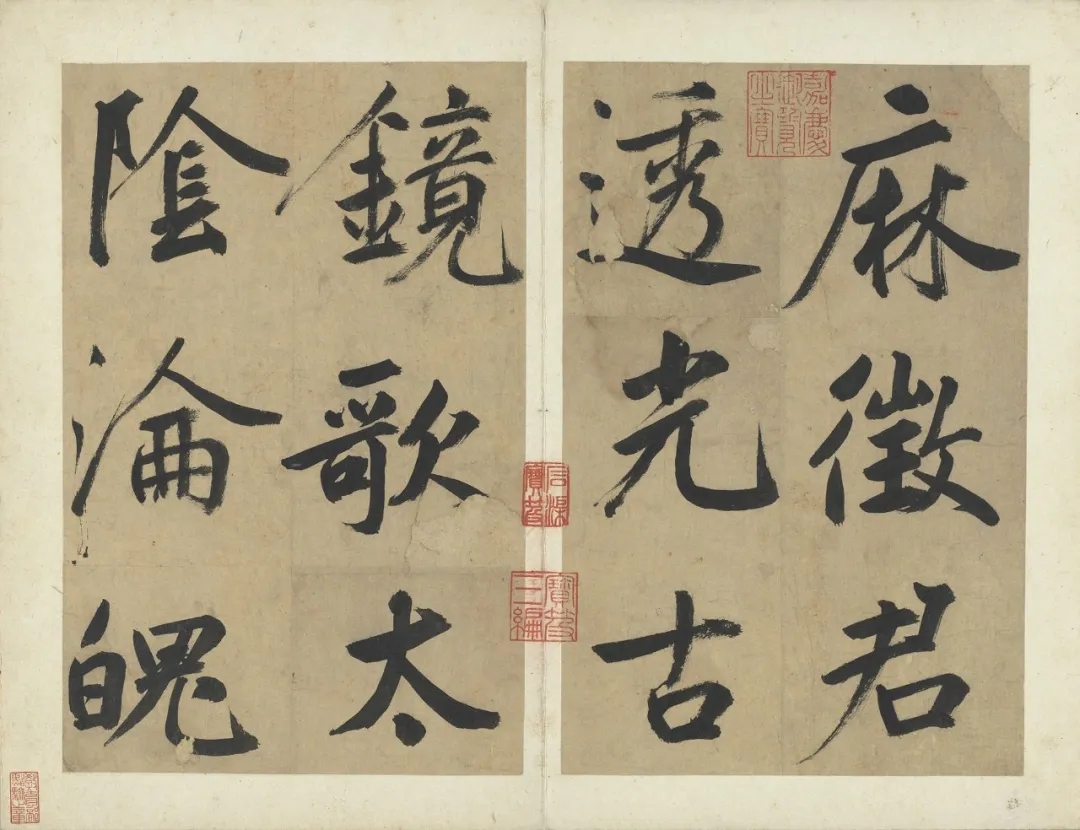 麻徵君
透光古
鏡歌太
陰淪魄
嘉慶
御覽
之寶
石渠
寶笈
寶笈
三編